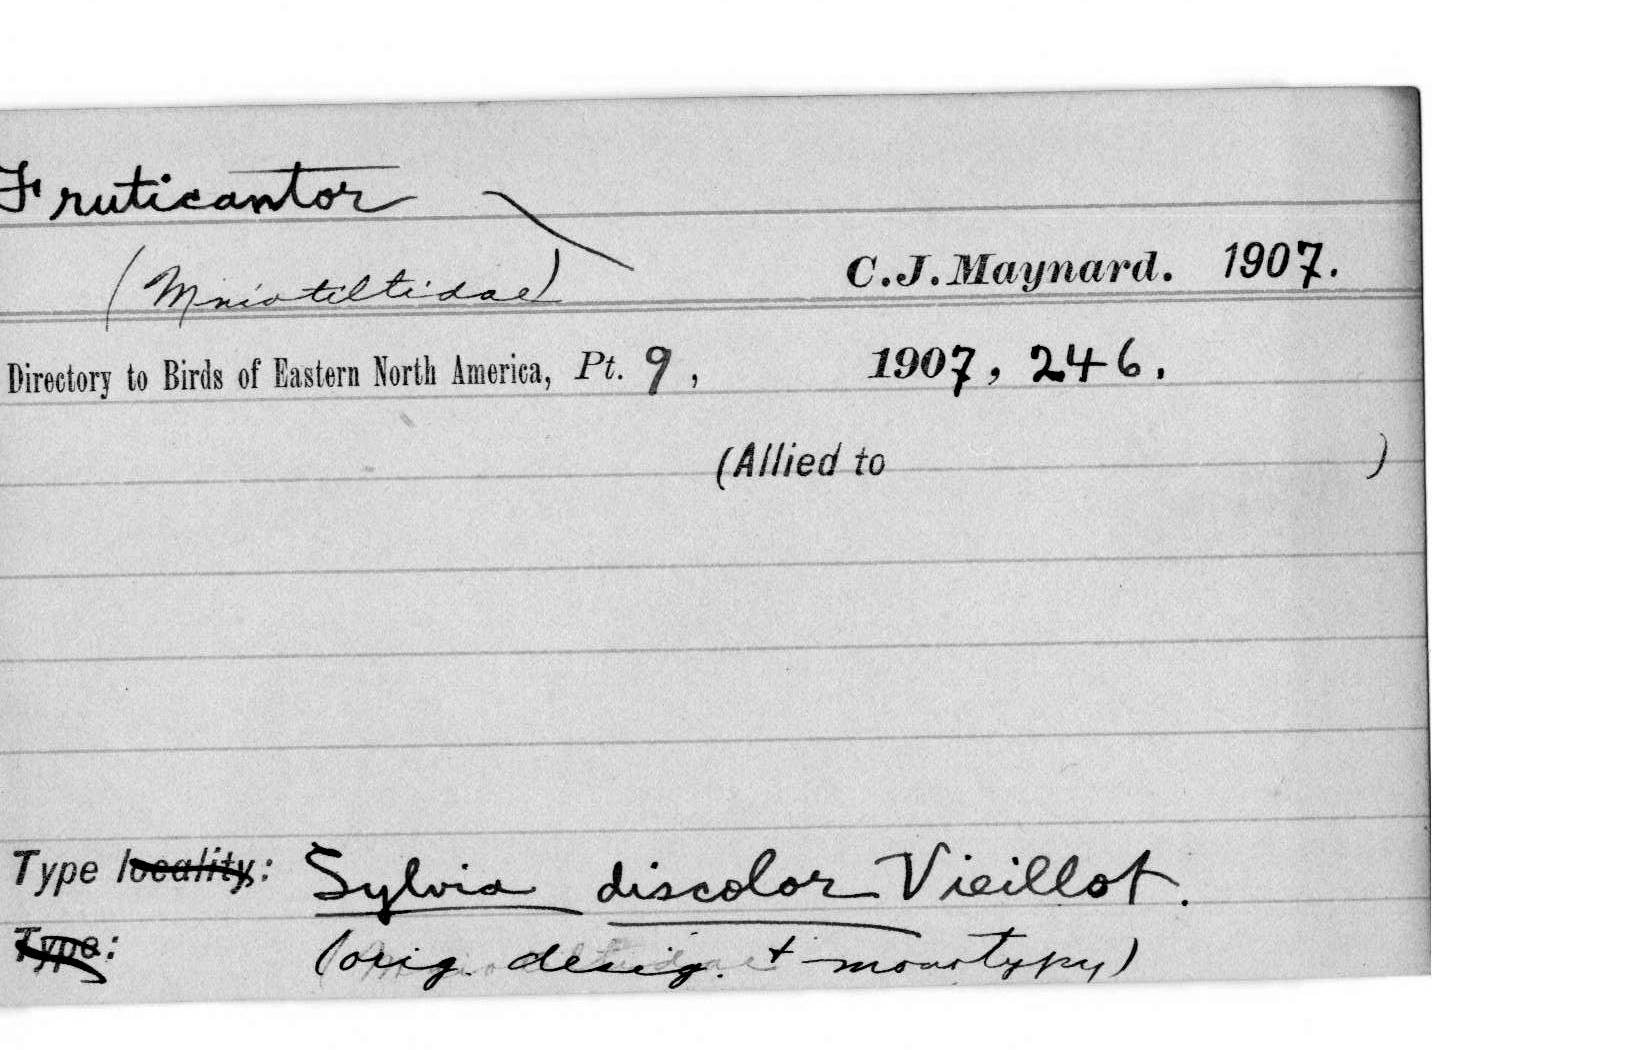 Fruticantor
(Mniotiltidae)
C.J. Maynard. 1907.
Directory to Birds of Eastern North America, Pt. 9, 1907, 246.
(Allied to )
Type locality: Sylvia discolor Vieillot.
Type: (orig. desig. + monotypy)